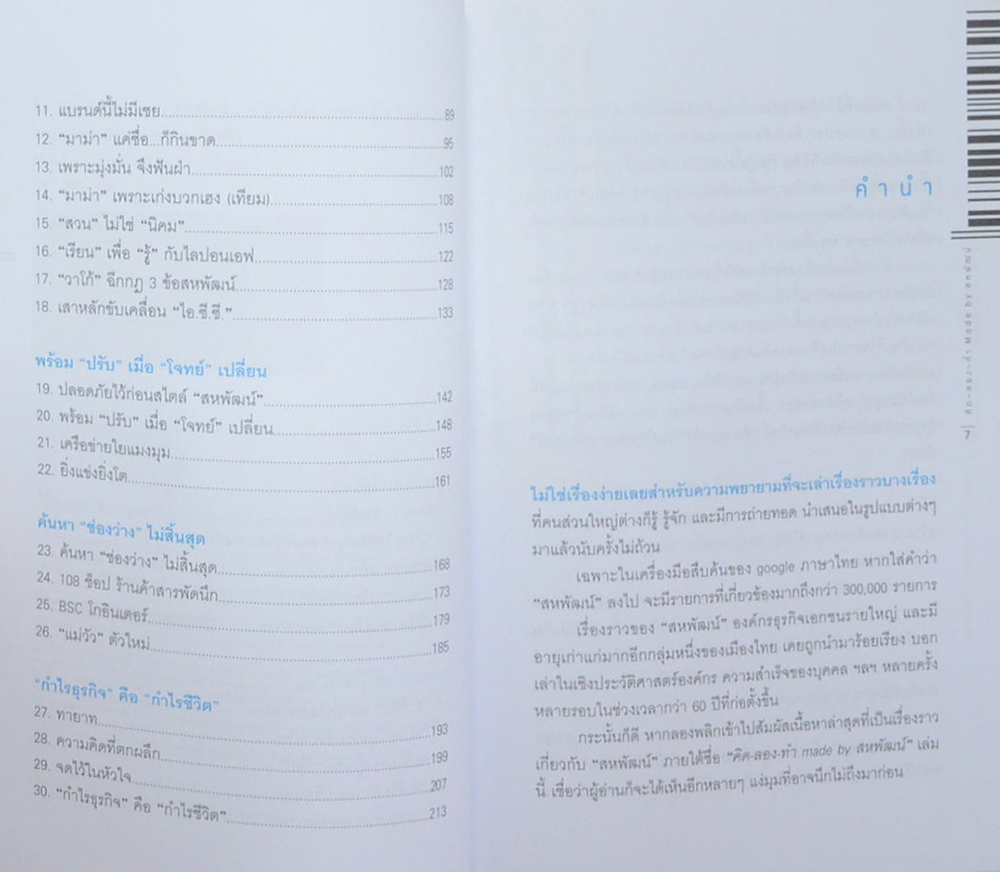 11. แบรนด์นี้ไม่มีเชย 89
12. "มาม่า" แค่ชื่อ...ก็กินขาด 95
13. เพราะมุ่งมั่น จึงฟันฝ่า 102
14. "มาม่า" เพราะเก่งบวกเฮง (เทียม) 108
15. "สวน" ไม่ใช่ "นิคม" 115
16. "เรียน" เพื่อ "รู้" กับไลปอนเอฟ 122
17. "วาโก้" ฉีกกฎ 3 ข้อสหพัฒน์ 128
18. เสาหลักขับเคลื่อน "ไอ.ซี.ซี." 133
พร้อม "ปรับ" เมื่อ "โจทย์" เปลี่ยน
19. ปลอดภัยไว้ก่อนสไตล์ "สหพัฒน์" 142
20. พร้อม "ปรับ" เมื่อ "โจทย์" เปลี่ยน 148
21. เครือข่ายใยแมงมุม 155
22. ยิ่งแข่งยิ่งโต 161
ค้นหา "ช่องว่าง" ไม่สิ้นสุด
23. ค้นหา "ช่องว่าง" ไม่สิ้นสุด 168
24. 108 ช็อป ร้านค้าสารพัดนึก 173
25. BSC โกอินเตอร์ 179
26. "แม่วัว" ตัวใหม่ 185
"กำไรธุรกิจ" คือ "กำไรชีวิต"
27. ทายาท 193
28. ความคิดที่ตกผลึก 199
29. จดไว้ในหัวใจ 207
30. "กำไรธุรกิจ" คือ "กำไรชีวิต" 213
คำนำ
คิด-ลอง-ทำ Made by สหพัฒน์
7
ไม่ใช่เรื่องง่ายเลยสำหรับความพยายามที่จะเล่าเรื่องราวบางเรื่อง
ที่คนส่วนใหญ่ต่างก็รู้ รู้จัก และมีการถ่ายทอด นำเสนอในรูปแบบต่างๆ
มาแล้วนับครั้งไม่ถ้วน
เฉพาะในเครื่องมือสืบค้นของ google ภาษาไทย หากใส่คำว่า
"สหพัฒน์" ลงไป จะมีรายการที่เกี่ยวข้องมากถึงกว่า 300,000 รายการ
เรื่องราวของ "สหพัฒน์" องค์กรธุรกิจเอกชนรายใหญ่ และมี
อายุเก่าแก่มากอีกกลุ่มหนึ่งของเมืองไทย เคยถูกนำมาร้อยเรียง บอก
เล่าในเชิงประวัติศาสตร์องค์กร ความสำเร็จของบุคคล ฯลฯ หลายครั้ง
หลายรอบในช่วงเวลากว่า 60 ปีที่ก่อตั้งขึ้น
กระนั้นก็ดี หากลองพลิกเข้าไปสัมผัสเนื้อหาล่าสุดที่เป็นเรื่องราว
เกี่ยวกับ "สหพัฒน์" ภายใต้ชื่อ "คิด-ลอง-ทำ made by สหพัฒน์" เล่ม
นี้ เชื่อว่าผู้อ่านก็จะได้เห็นอีกหลายๆ แง่มุมที่อาจนึกไม่ถึงมาก่อน